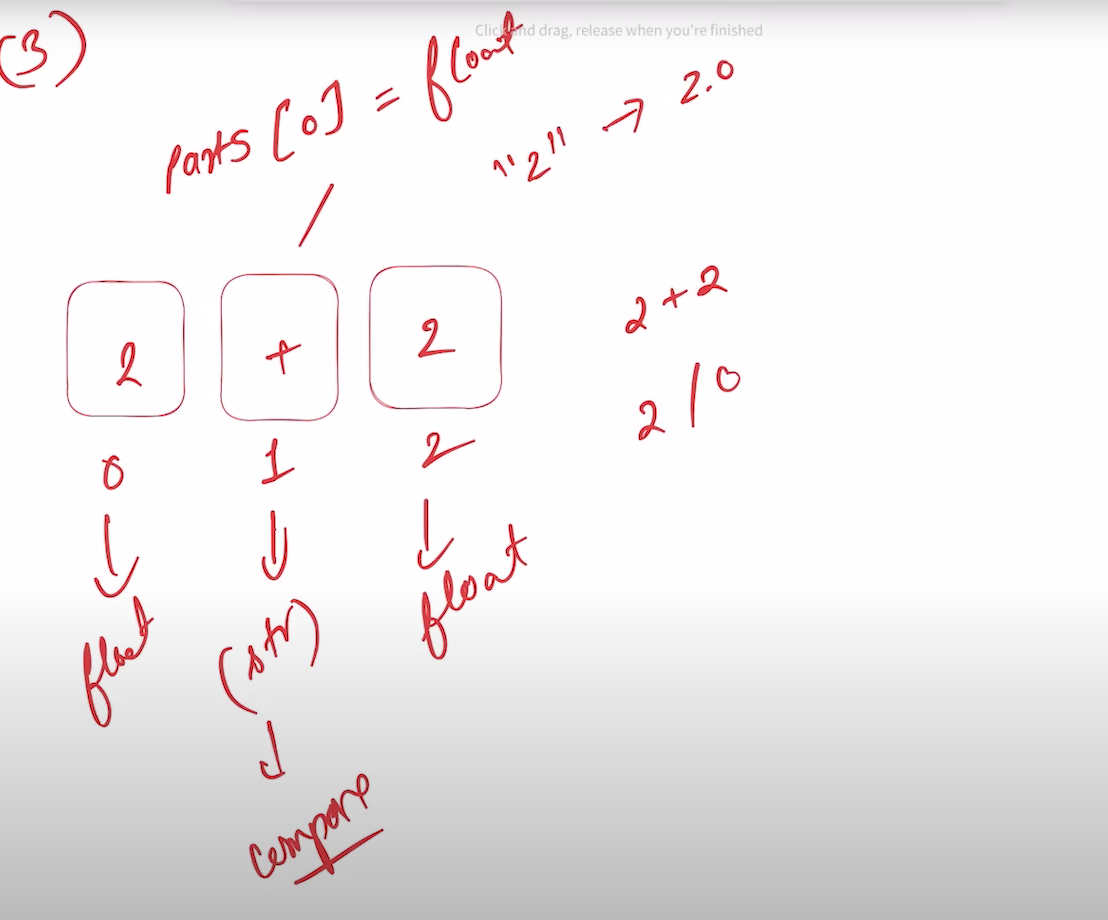 (3)
Click and drag, release when you're finished
parts [0] = float
"2" → 2.0
2 + 2
2 + 2
2 / 0
0 1 2
float (str) float
compare